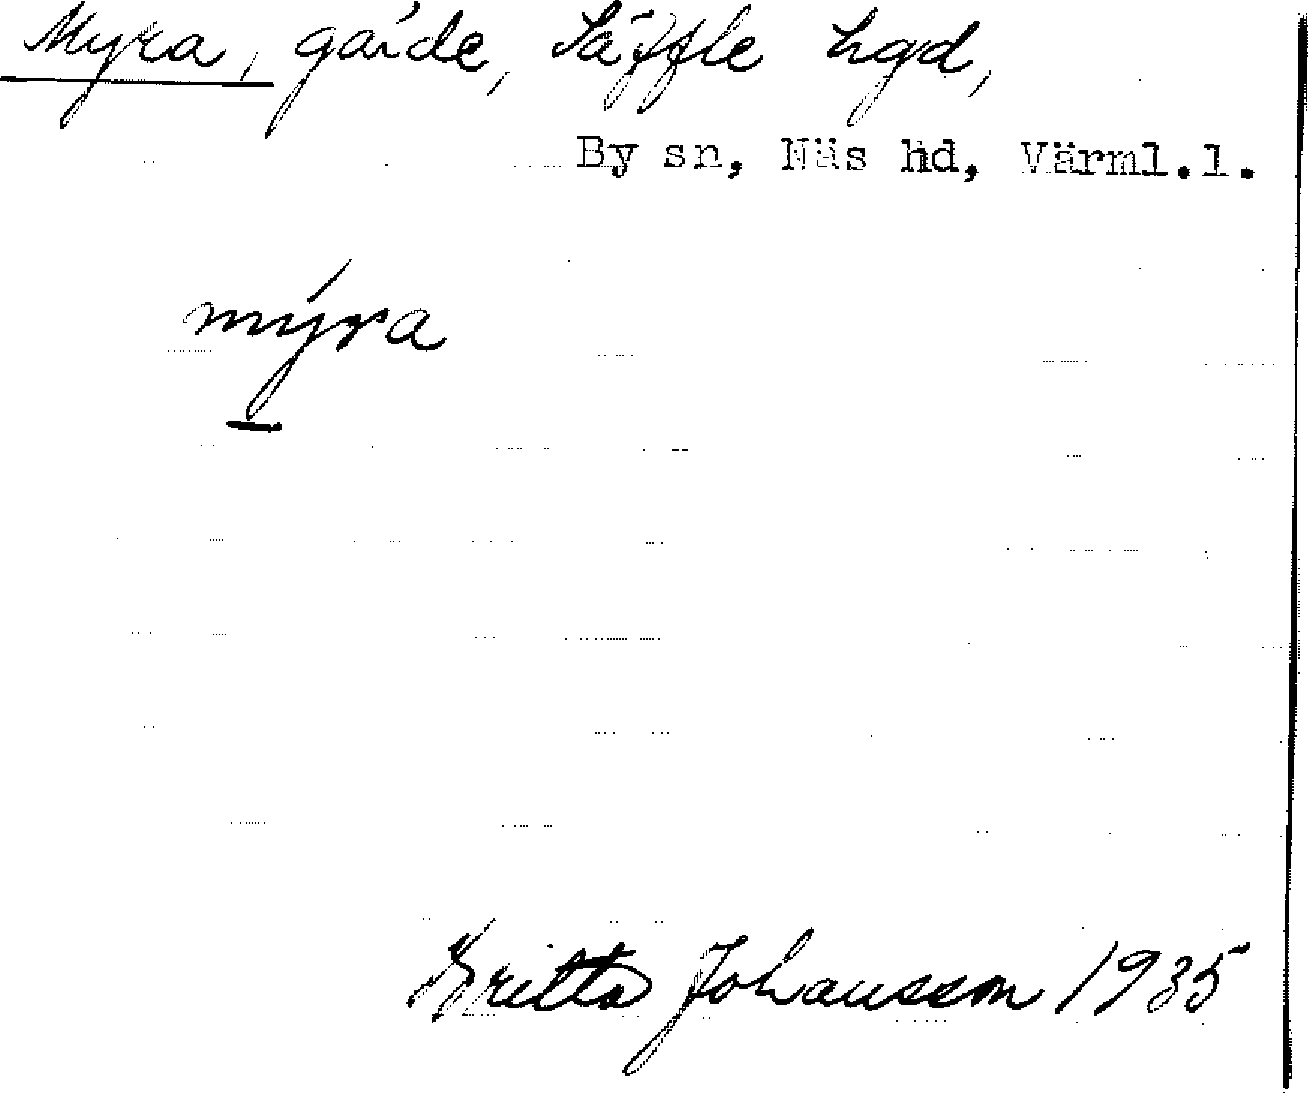 Myra, gärde, Säffle hgd,
By sn, Näs hd, Värml.l.
mýra
Britta Johansson 1935